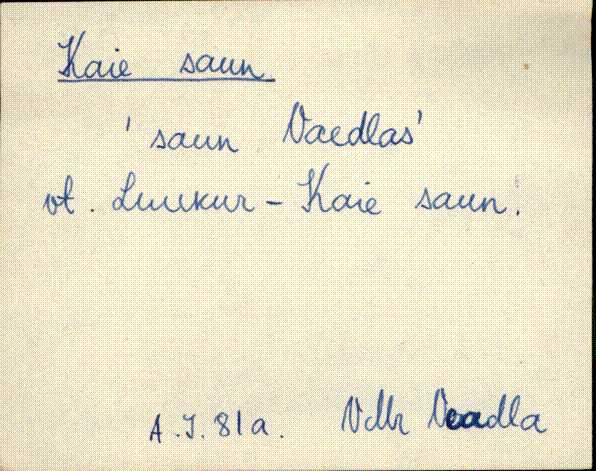 Kaie saun
'saun Vaedlas'
vt. Luukur - Kaie saun.
A.J.81a. Vdlr Vaadla